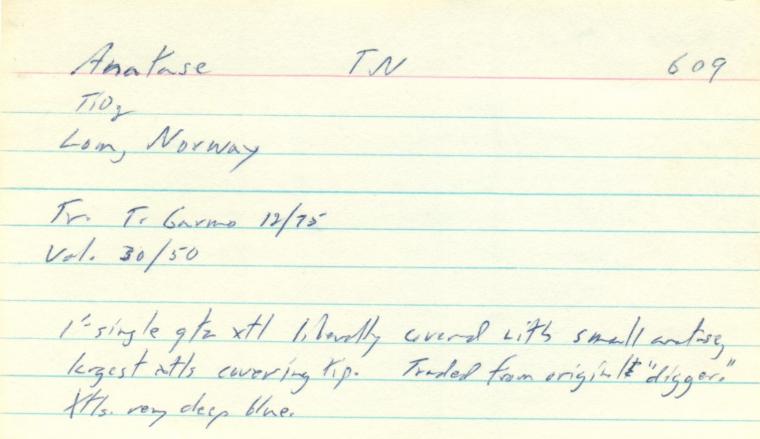 Anatase TN 609
TiO2
Lom, Norway
Tr. T. Garmo 12/75
Val. 30/50
1" single qtz xtl liberally covered with small anatase,
largest xtls covering tip. Traded from original "digger."
Xtls. very deep blue.